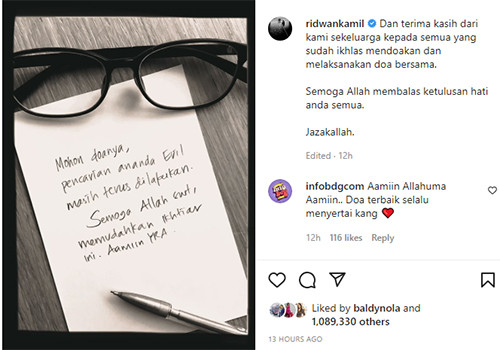 Mohon doanya,
pencarian ananda Eril
masih terus dilakukan.
Semoga Allah swt,
memudahkan ikhtiar
ini. Aamiin YRA.
ridwankamil Dan terima kasih dari
kami sekeluarga kepada semua yang
sudah ikhlas mendoakan dan
melaksanakan doa bersama.
Semoga Allah membalas ketulusan hati
anda semua.
Jazakallah.
Edited · 12h
infobdgcom Aamiin Allahuma
Aamiin.. Doa terbaik selalu
menyertai kang ❤️
12h 116 likes Reply
Liked by baldynola and
1,089,330 others
13 HOURS AGO